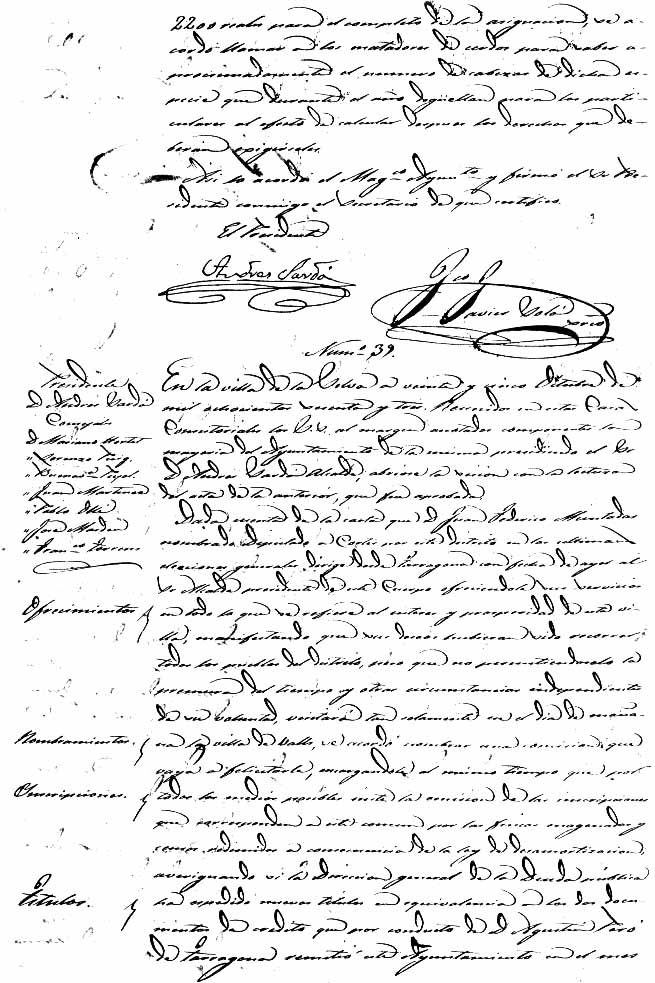 2200 reales para el completo de la asignacion, se a-
cordó llamar a los matadores de cerdos para saber a-
proximadamente el numero de cabezas de dicha es-
pecie que durante el año degüellan para los parti-
culares al efecto de calcular despues los derechos que de-
beran exigirseles.
Asi lo acordó el Magco. Ayuntto. y firmó el Sr. Pre-
sidente conmigo el Secretario de que certifico.
El Presidente
Andres Sardá
Javier Solá
Srio
Numo. 39.
Presidente
D. Andres Sardá
Concejales
D. Mariano
" Lorenzo Puig
" Juan Martinez
" Pablo
" José
" Franco.
En la villa de la Selva a veinte y cinco Octubre de
mil ochocientos sesenta y tres. Reunidos en estas Casas
Consistoriales los S.S. al margen anotados componentes la
mayoria del Ayuntamiento de la misma presidiendo el Sr.
D. Andres Sardá Alcalde, abriose la sesion con la lectura
del acta de la anterior, que fue aprobada.
Dada cuenta de la carta que D. Juan Federico Muntadas
nombrado Diputado a Cortes por este distrito en las ultimas
elecciones generales dirige desde Tarragona con fecha de ayer al
Sr. Alcalde presidente de este Cuerpo ofreciendole sus servicios
Ofrecimientos
en todo lo que se refiere al interes y prosperidad de esta vi-
lla, manifestando que sus deseos hubieran sido recorrer
todos los pueblos del distrito, pero que no permitiendoselo la
premura del tiempo y otras circunstancias independientes
de su voluntad, visitará tan solamente en el dia de maña-
Nombramientos.
na la villa de Valls, se acordó nombrar una comision que
vaya a felicitarle, encargandole al mismo tiempo que por
Inscripciones.
todos los medios posibles inste la emision de las inscripciones
que corresponden a este comun por las fincas enagenadas y
censos redimidos a consecuencia de la ley de desamortizacion,
averiguando si la Direccion general de la Deuda publica
Titulos.
ha espedido nuevos titulos en equivalencia a los dos docu-
mentos de credito que por conducto de D. Agustin
de Tarragona remitió este Ayuntamiento en el mes